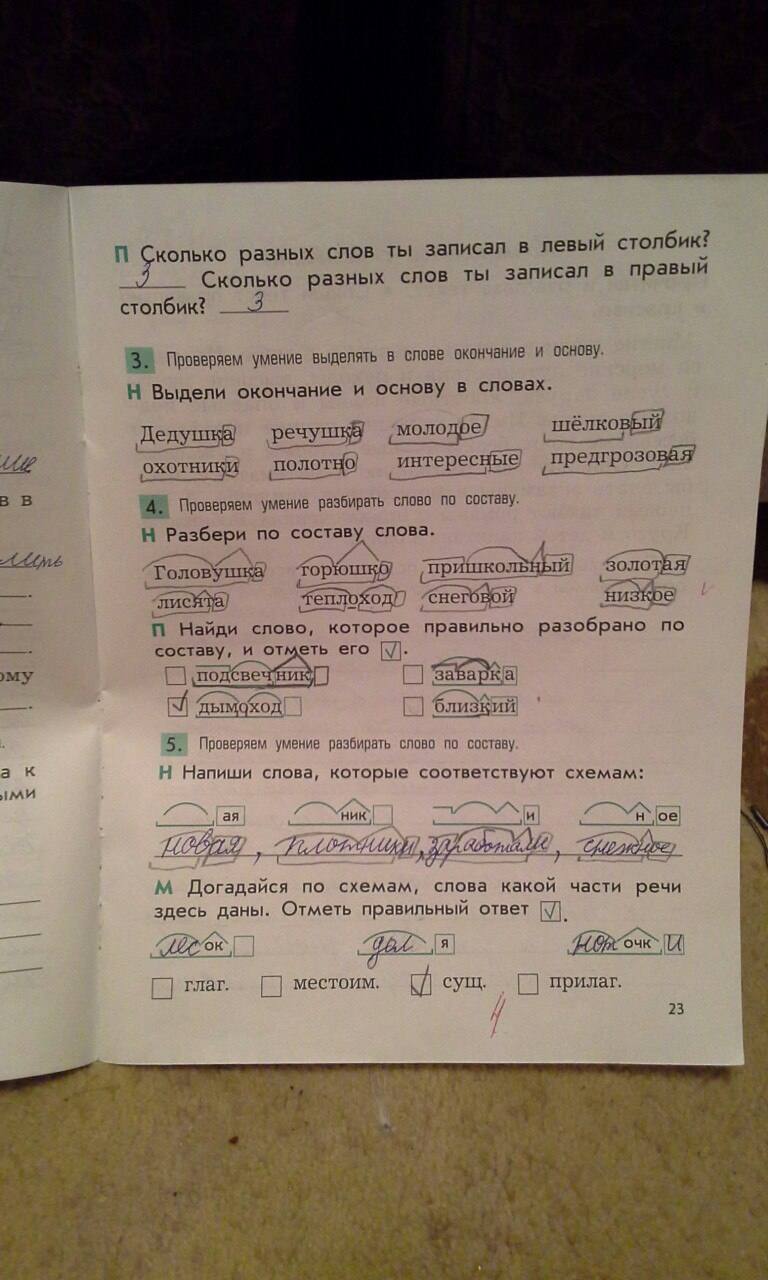 П Сколько разных слов ты записал в левый столбик?
3 Сколько разных слов ты записал в правый
столбик? 3
3. Проверяем умение выделять в слове окончание и основу.
Н Выдели окончание и основу в словах.
Дедушка речушка молодое шёлковый
охотники полотно интересные предгрозовая
4. Проверяем умение разбирать слово по составу.
Н Разбери по составу слова.
Головушка горюшко пришкольный золотая
лисята теплоход снеговой низкое
П Найди слово, которое правильно разобрано по
составу, и отметь его ✓.
подсвечник заварка
✓ дымоход близкий
5. Проверяем умение разбирать слово по составу.
Н Напиши слова, которые соответствуют схемам:
ая ник и н ое
новая, плотники, заработали, снежное
М Догадайся по схемам, слова какой части речи
здесь даны. Отметь правильный ответ ✓.
лесок доля ноточки
глаг. местоим. ✓ сущ. прилаг.
4
23
в в
ому
а к
ыми